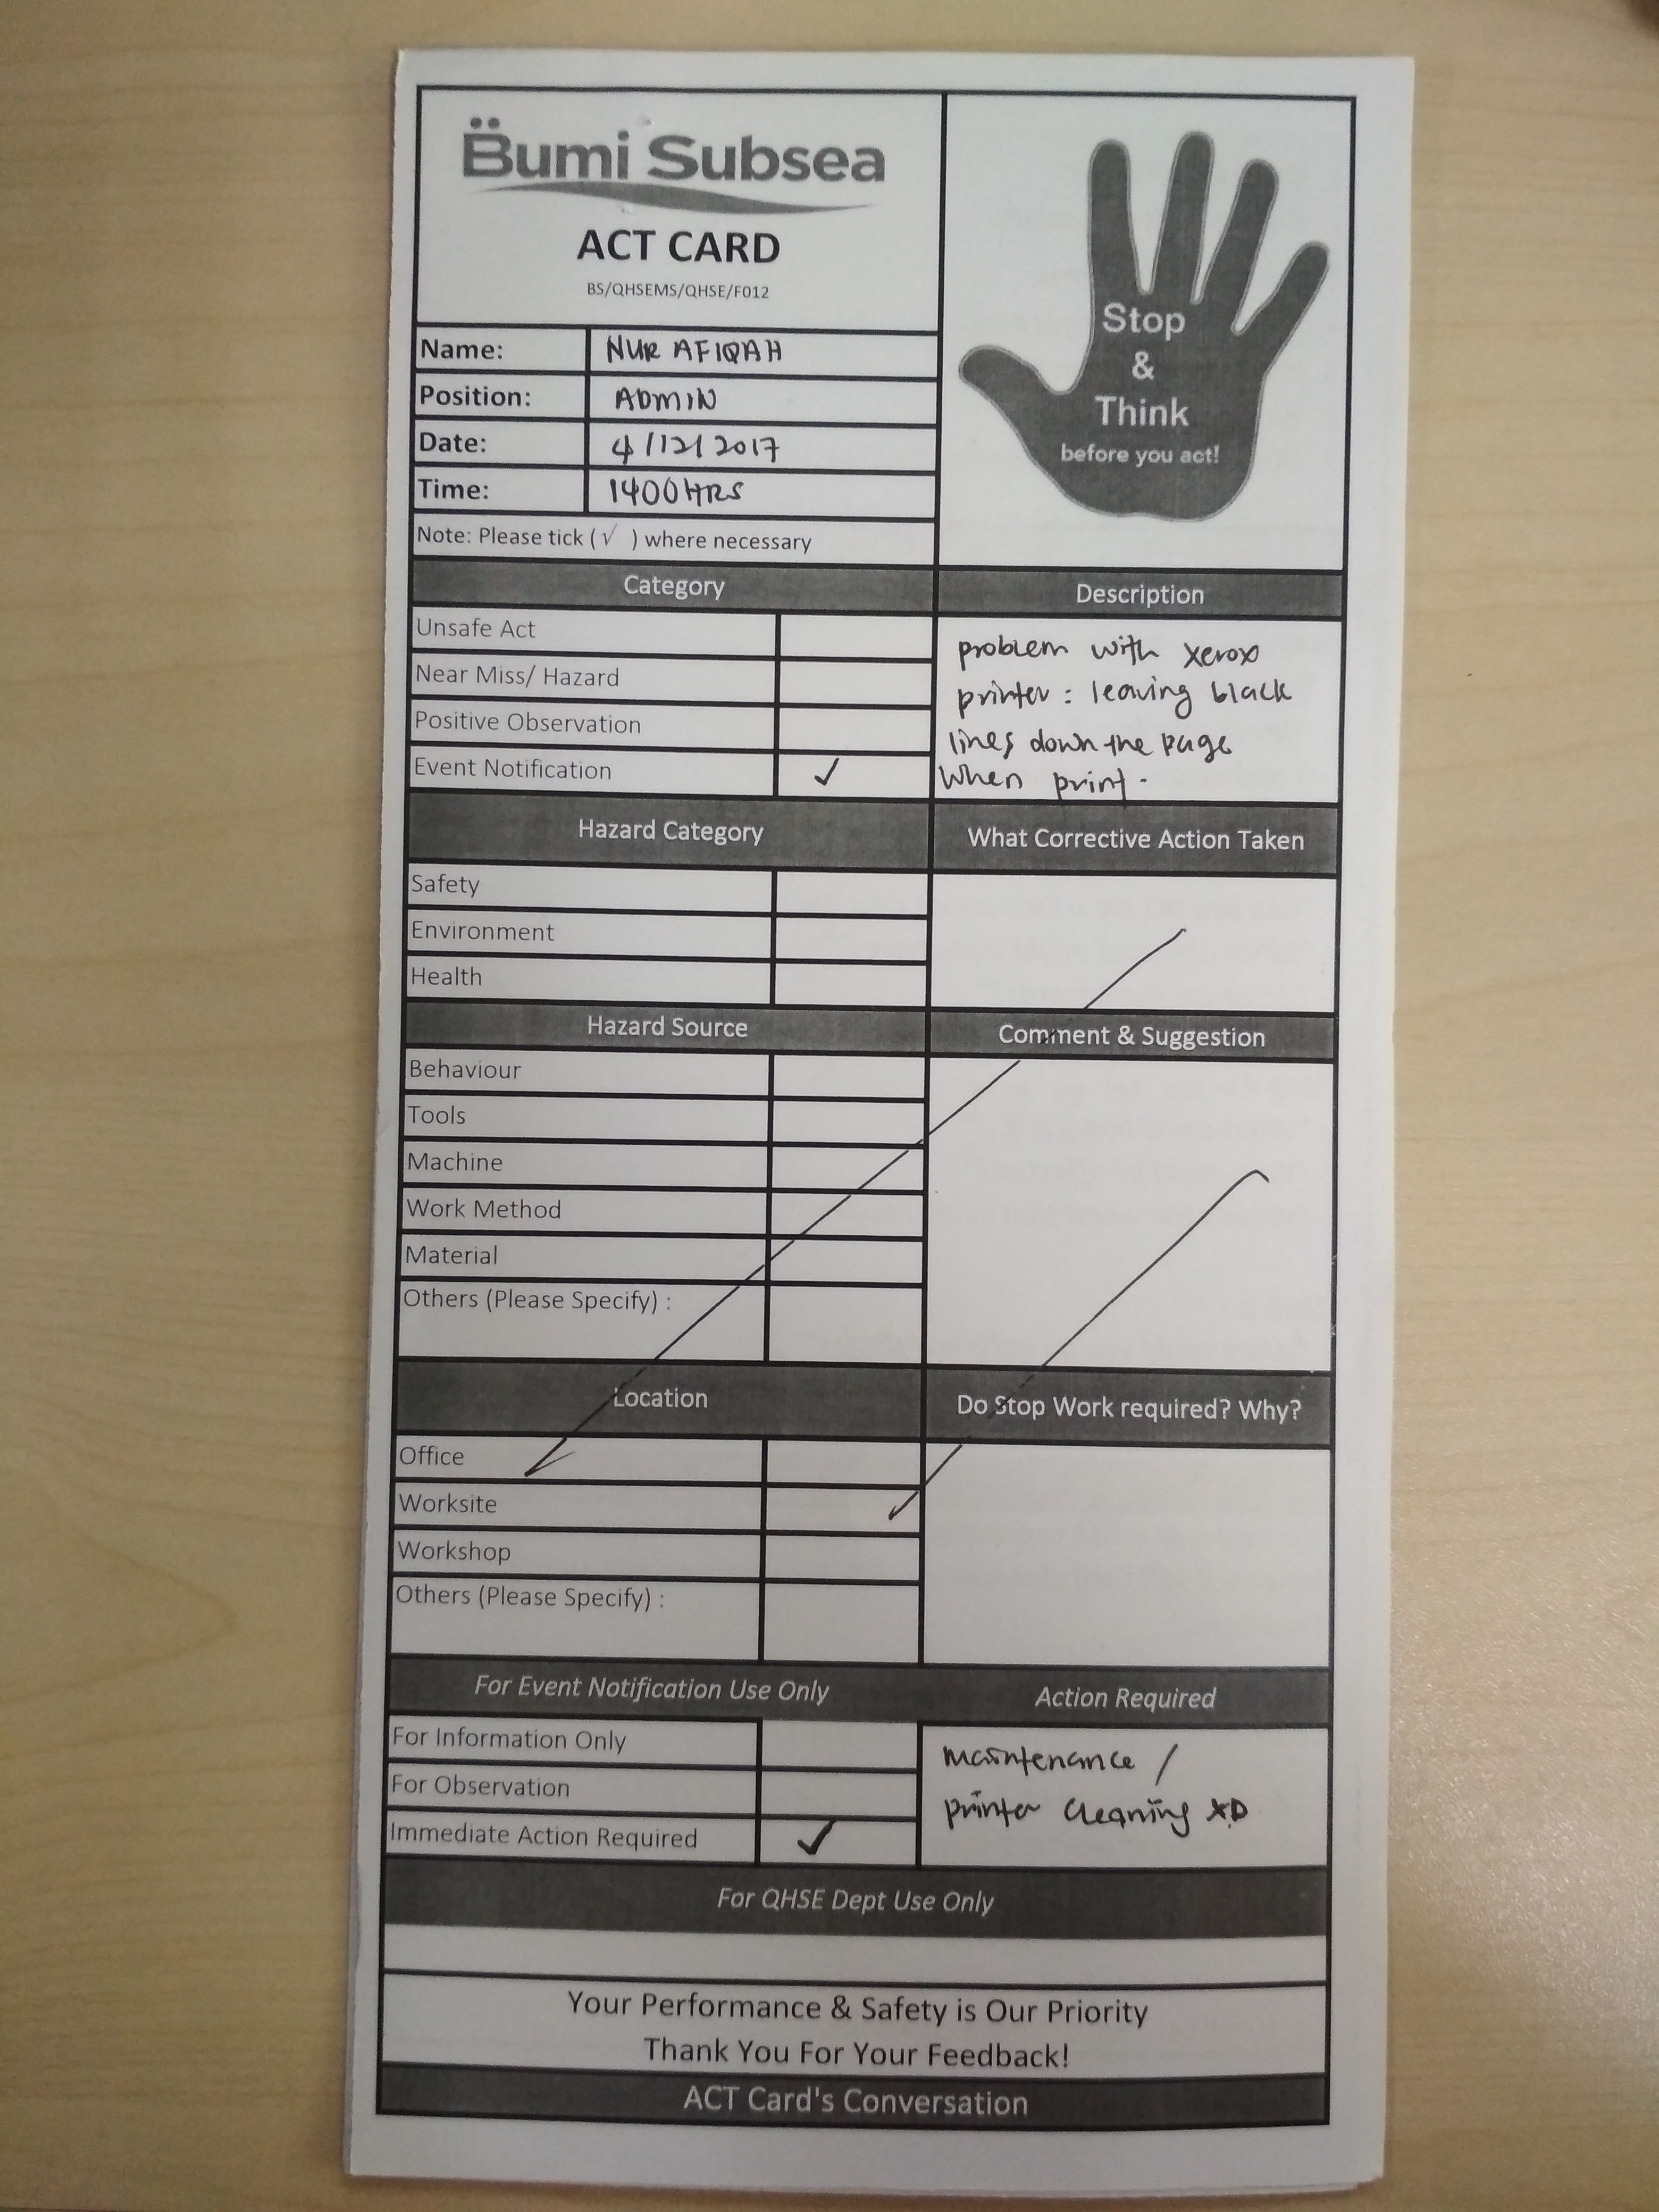 Bumi Subsea
ACT CARD
BS/QHSEMS/QHSE/F012
Stop
&
Think
before you act!
Name: NUR AFIQAH
Position: ADMIN
Date: 4/12/2017
Time: 1400HRS
Note: Please tick (√ ) where necessary
Category
Unsafe Act
Near Miss/ Hazard
Positive Observation
Event Notification ✓
Description
problem with xerox
printer : leaving black
lines down the page
when print.
Hazard Category
Safety
Environment
Health
What Corrective Action Taken
Hazard Source
Behaviour
Tools
Machine
Work Method
Material
Others (Please Specify) :
Comment & Suggestion
Location
Office
Worksite
Workshop
Others (Please Specify) :
Do Stop Work required? Why?
For Event Notification Use Only
For Information Only
For Observation
Immediate Action Required ✓
Action Required
maintenance /
printer cleaning XD
For QHSE Dept Use Only
Your Performance & Safety is Our Priority
Thank You For Your Feedback!
ACT Card's Conversation